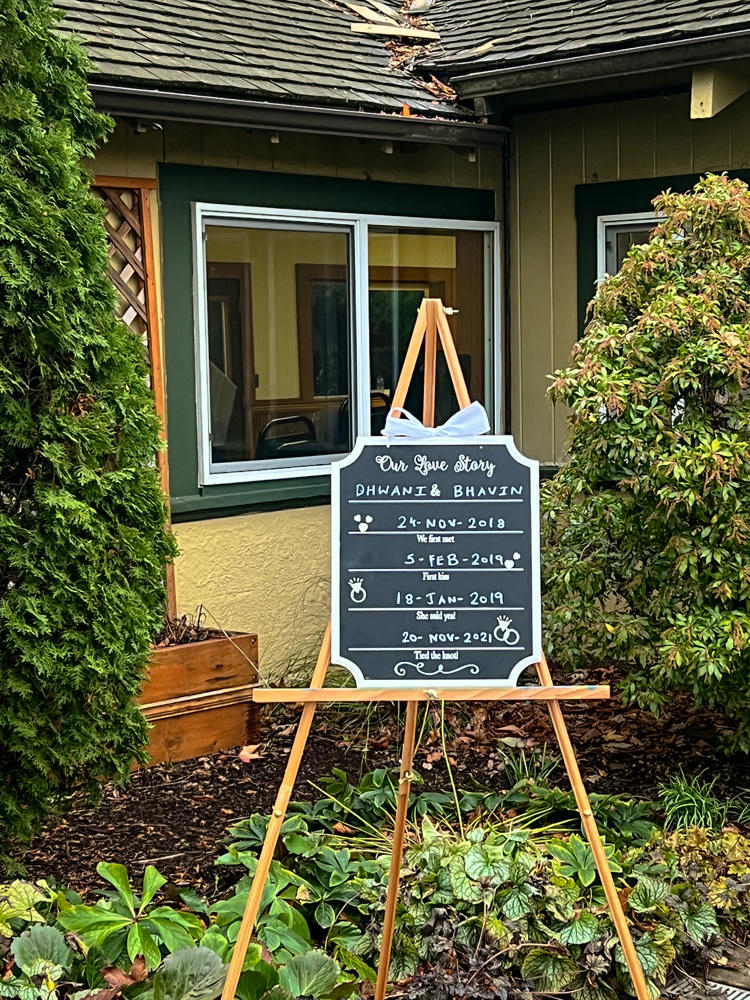 Our Love Story
DHWANI & BHAVIN
24-NOV-2018
We first met
5-FEB-2019
First kiss
18-JAN-2019
She said yes!
20-NOV-2021
Tied the knot!